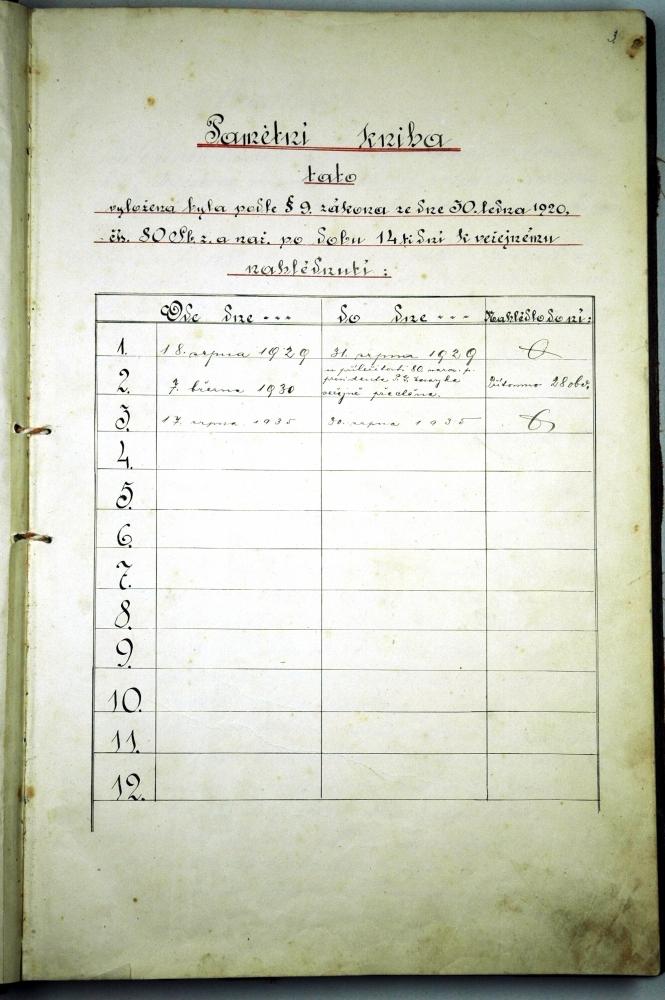 3
Pamětní kniha
tato
vyložena byla podle § 9. zákona ze dne 30. ledna 1920,
čís. 80 Sb. z. a nař. po dobu 14ti dní k veřejnému
nahlédnutí :
Ode dne --- do dne --- Nahlédlo do ní:
1. 18. srpna 1929 31. srpna 1929
2. 7. března 1930 u příležitosti 80. naroz. p. presidenta T. G. Masaryka veřejně předčítána. Přítomno 28 obč.
3. 17. srpna 1935 30. srpna 1935
4.
5.
6.
7.
8.
9.
10.
11.
12.